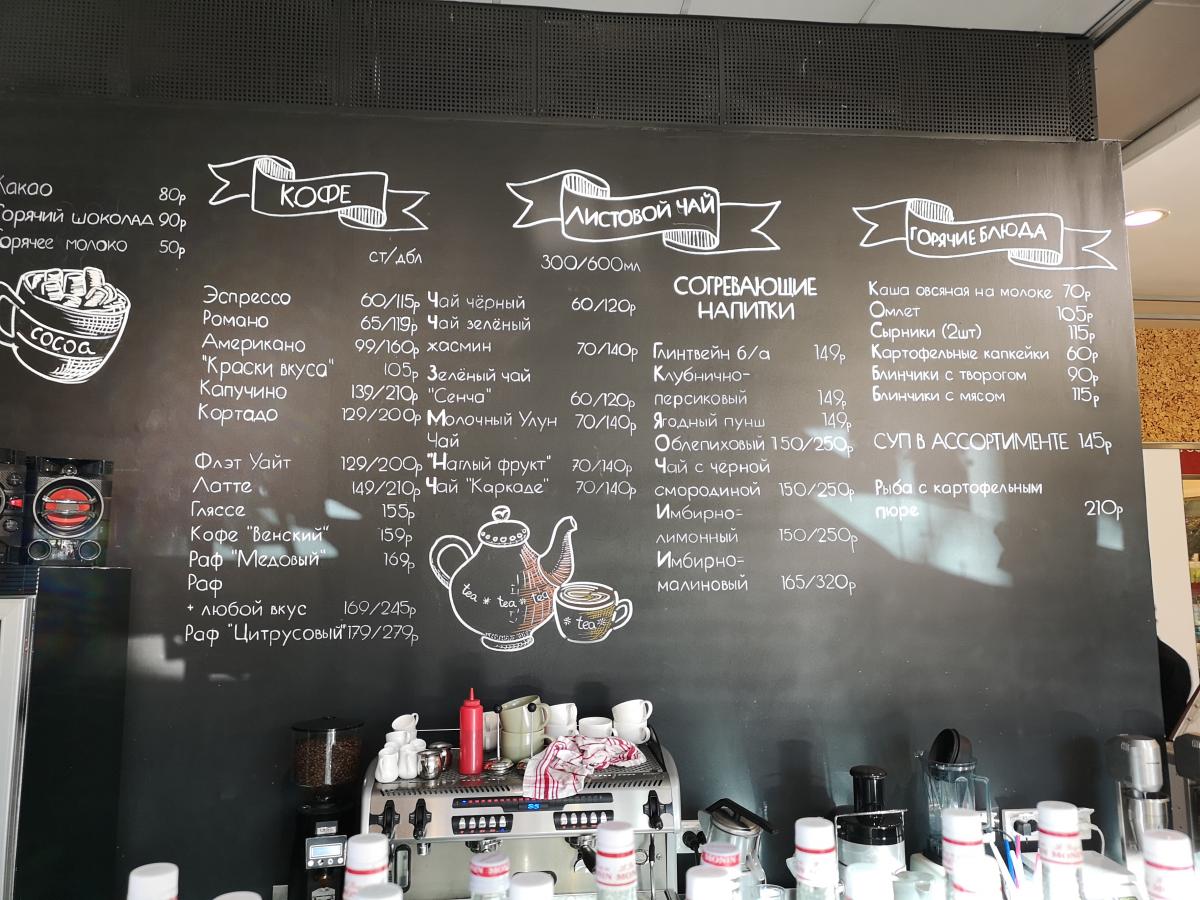 Какао 80р
Горячий шоколад 90р
Горячее молоко 50р
cocoa
КОФЕ
ст/дбл
Эспрессо 60/115р
Романо 65/119р
Американо 99/160р
"Краски вкуса" 105р
Капучино 139/210р
Кортадо 129/200р
Флэт Уайт 129/200р
Латте 149/210р
Гляссе 155р
Кофе "Венский" 159р
Раф "Медовый" 169р
Раф
+ любой вкус 169/245р
Раф "Цитрусовый" 179/279р
ЛИСТОВОЙ ЧАЙ
300/600мл
Чай чёрный 60/120р
Чай зелёный
жасмин 70/140р
Зелёный чай
"Сенча" 60/120р
Молочный Улун 70/140р
Чай
"Наглый фрукт" 70/140р
Чай "Каркаде" 70/140р
tea * tea * tea
* tea *
СОГРЕВАЮЩИЕ
НАПИТКИ
Глинтвейн б/а 149р
Клубнично-
персиковый 149р
Ягодный пунш 149р
Облепиховый 150/250р
Чай с чёрной
смородиной 150/250р
Имбирно-
лимонный 150/250р
Имбирно-
малиновый 165/320р
ГОРЯЧИЕ БЛЮДА
Каша овсяная на молоке 70р
Омлет 105р
Сырники (2шт) 115р
Картофельные капкейки 60р
Блинчики с творогом 90р
Блинчики с мясом 115р
СУП В АССОРТИМЕНТЕ 145р
Рыба с картофельным
пюре 210р
MONIN